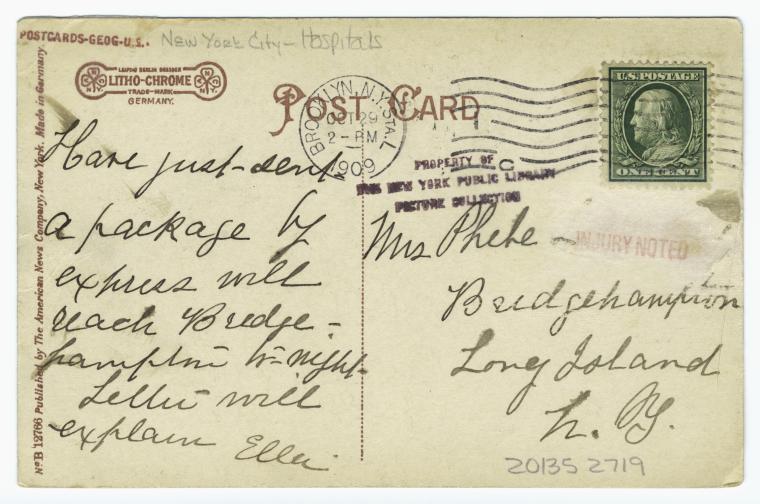 POSTCARDS-GEOG-U.S.. New York City-Hospitals
LEIPZIG BERLIN DRESDEN
LITHO-CHROME
TRADE-MARK
GERMANY.
POST CARD
BROOKLYN, N.Y. STA. L
OCT 29
2-PM
1909
C
U.S. POSTAGE
ONE CENT
PROPERTY OF
THE NEW YORK PUBLIC LIBRARY
PICTURE COLLECTION
INJURY NOTED
Have just sent
a package by
express will
reach Bridge-
hampton to-night
Letter will
explain
Mrs Phebe
Bridgehampton
Long Island
N. Y.
20135 2719
No B 12766 Published by The American News Company, New York. Made in Germany.